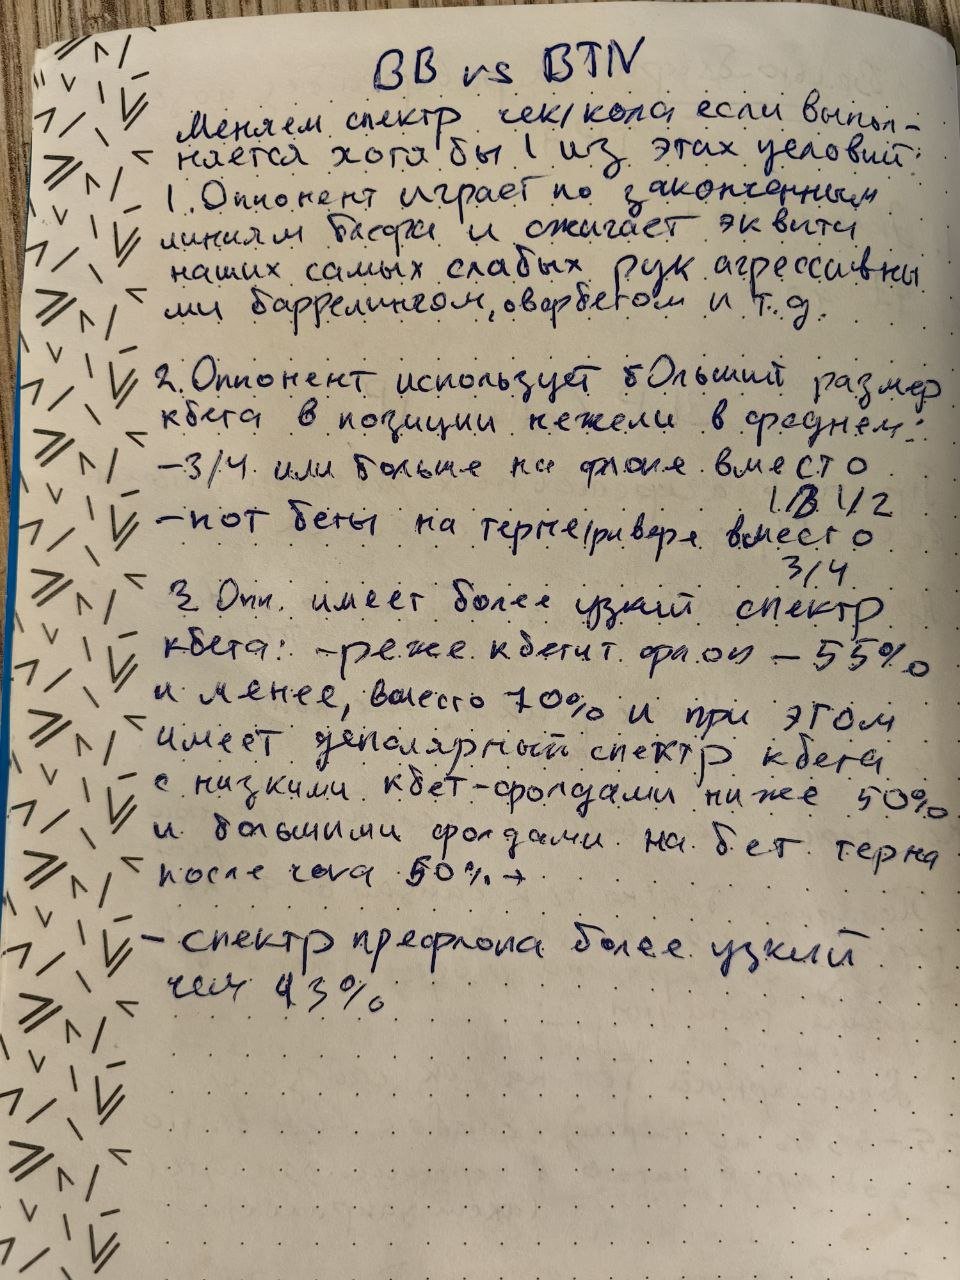 BB vs BTN
Меняем спектр чек/кола если выпол-
няется хотя бы 1 из этах условий:
1. Оппонент играет по законченным
линиям блефа и сжигает эквити
наших самых слабых рук агрессивны
ми баррелингом, овербетом и т.д.
2. Оппонент использует бОльший размер
кбета в позиции нежели в среднем:
- 3/4 или больше на флопе вместо
1/3 1/2
- пот беты на терне/ривере вместо
3/4
3 Опп. имеет более узкий спектр
кбета: - реже кбетит флоп - 55%
и менее, вместо 70% и при этом
имеет деполярный спектр кбета
с низкими кбет-фолдами ниже 50%
и большими фолдами на бет терна
после чека 50% →
- спектр префлопа более узкий
чем 43%